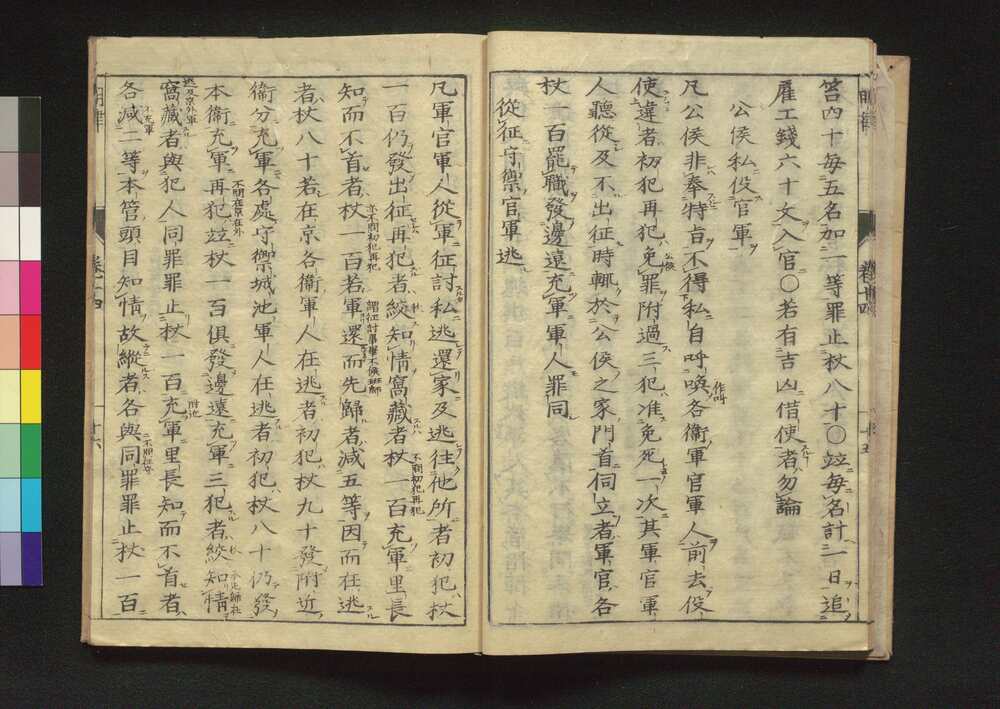 笞四十每五名加一等罪止杖八十〇竝每名計一日追
雇工錢六十文入官〇若有吉凶借使者勿論
公侯私役官軍
凡公侯非奉特旨不得私自呼喚各衞軍官軍人前去役
使違者初犯再犯免罪附過三犯准免死一次其軍官軍
人聽從及不出征時輒於公侯之家門首伺立者軍官各
杖一百罷職發邊遠充軍軍人罪同
從征守禦官軍逃
凡軍官軍人從軍征討私逃還家及逃往他所者初犯杖
一百仍發出征再犯者絞知情窩藏者不問初犯再犯杖一百充軍里長
知而不首者亦不問初犯再犯杖一百若軍還而先歸者減五等因而在逃
者杖八十若在京各衞軍人在逃者初犯杖九十發附近
衞分充軍各處守禦城池軍人在逃者初犯杖八十仍發
本衞充軍再犯不問在京在外竝杖一百俱發邊遠充軍三犯者絞知情
窩藏者與犯人同罪罪止杖一百充軍里長知而不首者
各減二等本管頭目知情故縱者各與同罪罪止杖一百
明律
卷十四
十六